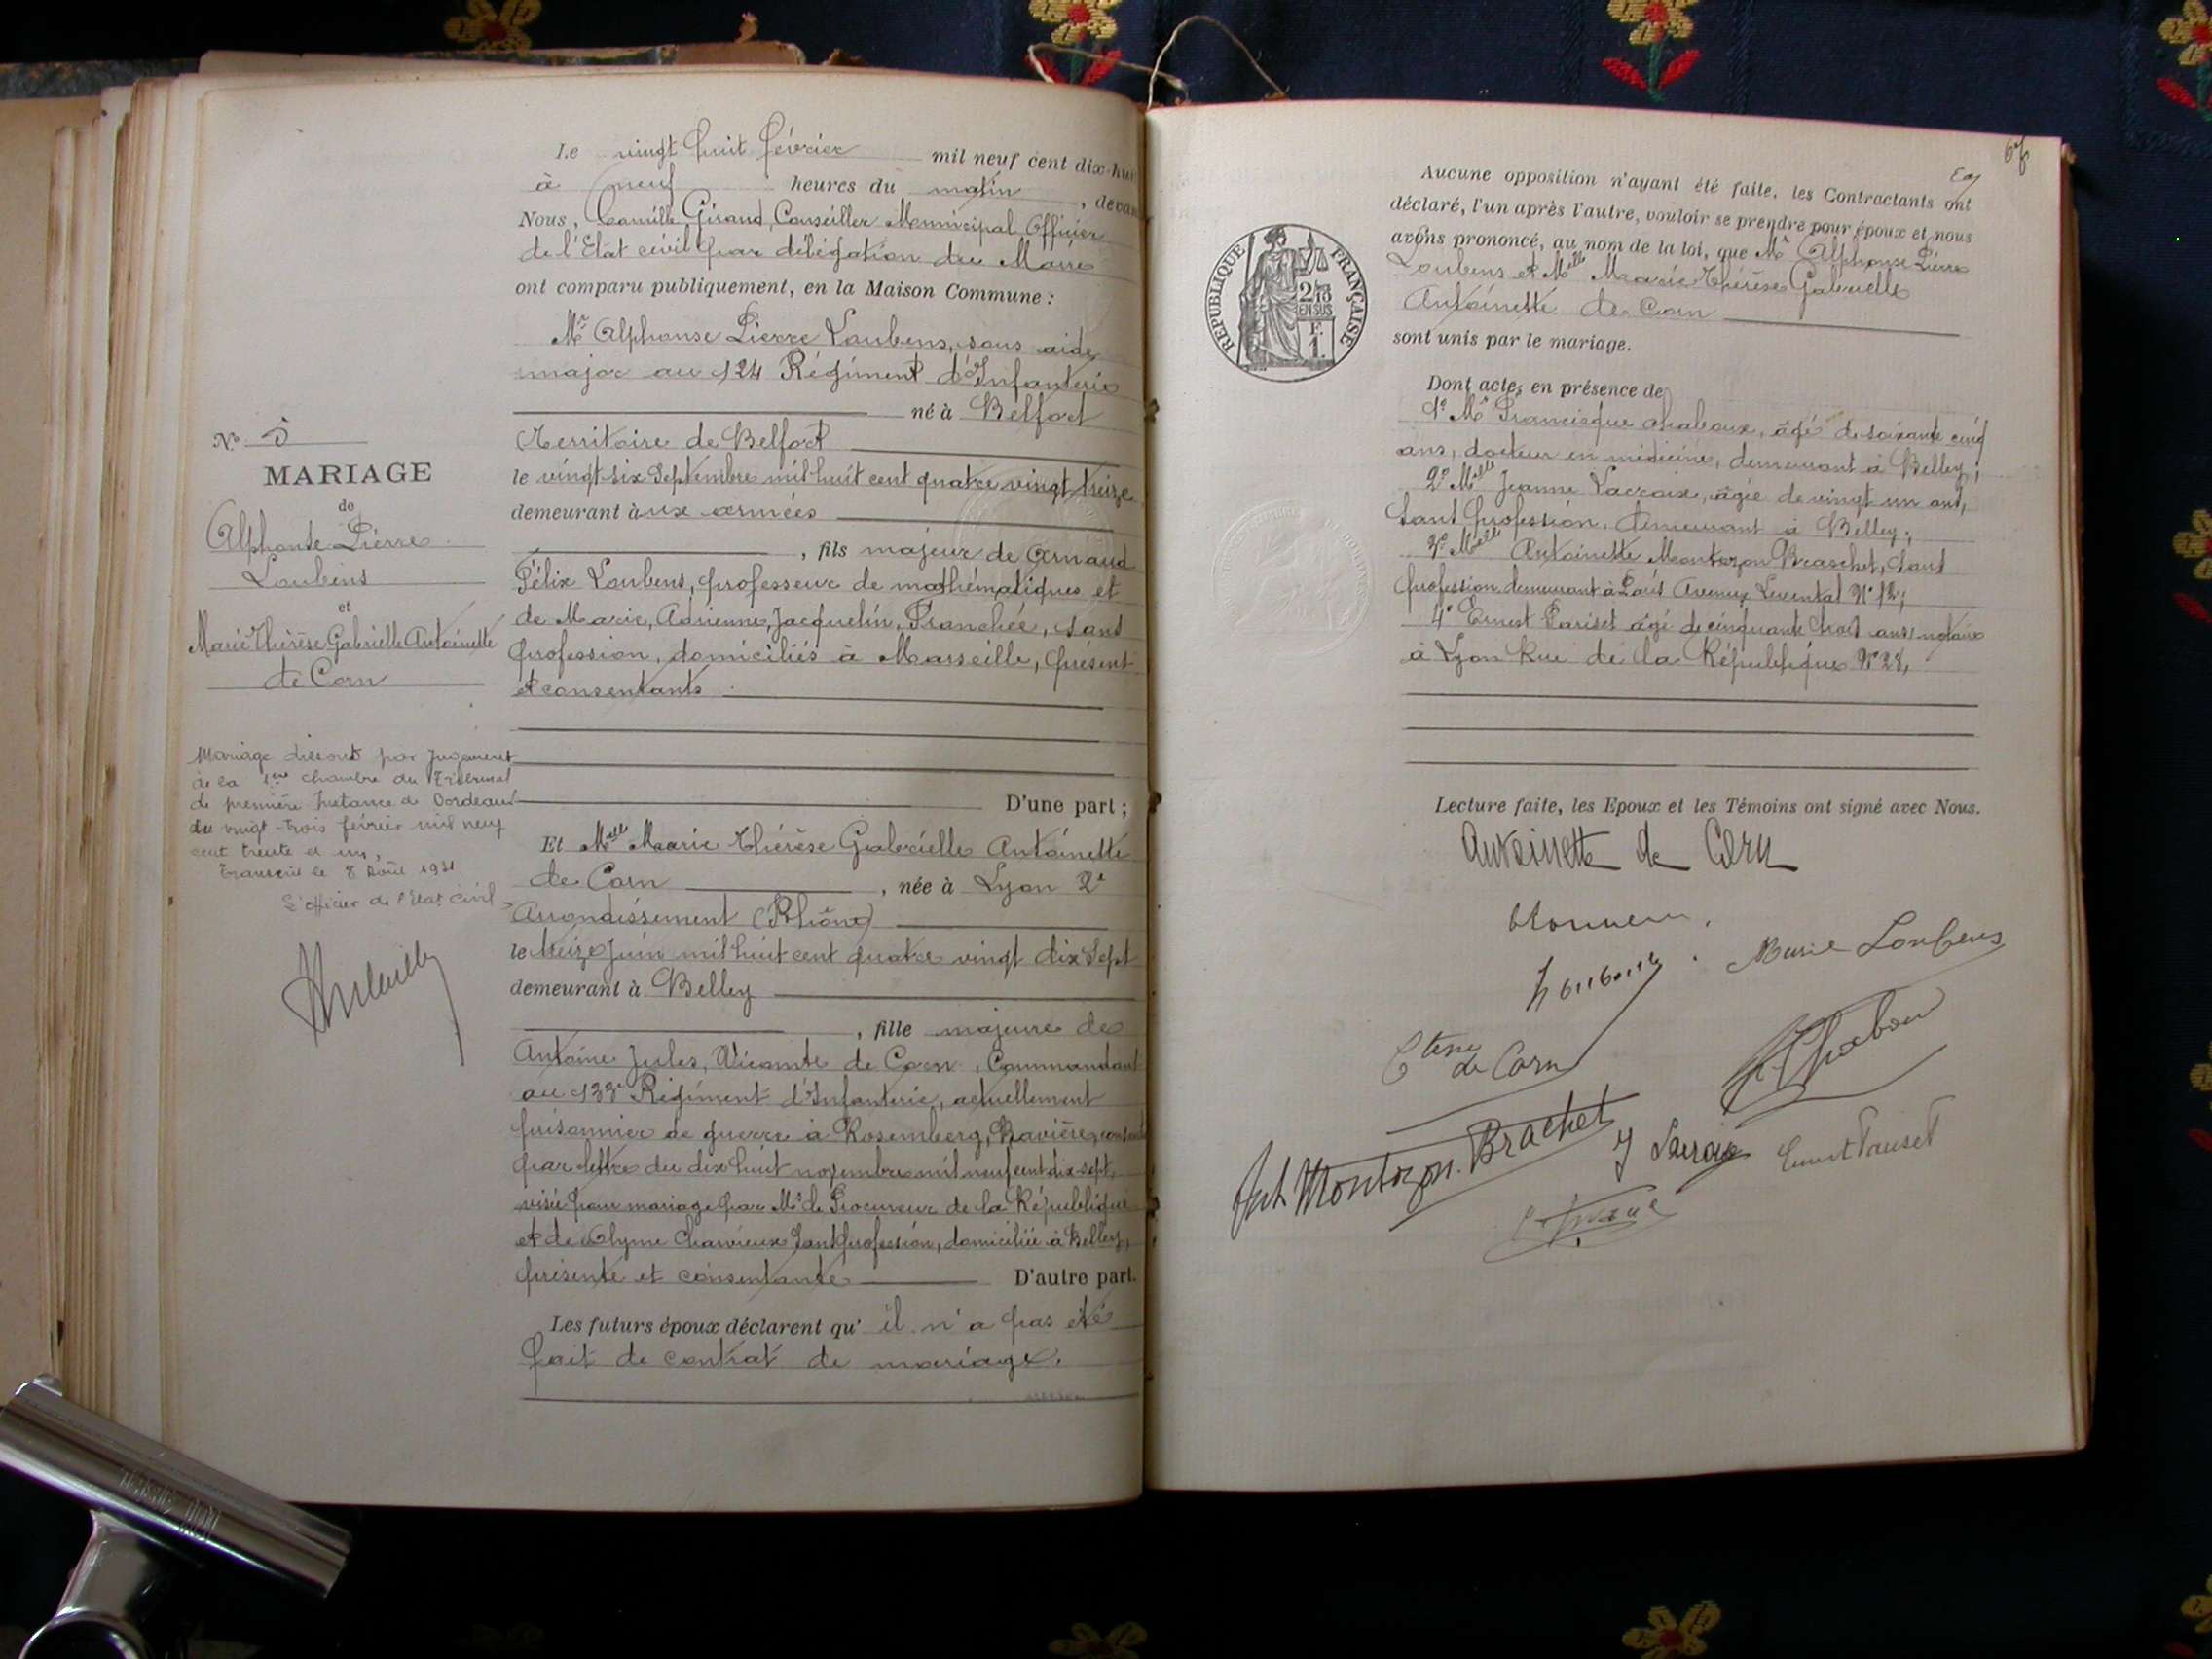 Le vingt huit février mil neuf cent dix-hui
à neuf heures du matin, devan
Nous, Camille Girand, Conseiller Municipal Officier
de l'Etat civil par délégation du Maire
ont comparu publiquement, en la Maison Commune :
Mr Alphonse Pierre Loubens, sous aide
major au 124 Régiment d'Infanterie
né à Belfort
(Territoire de Belfort
le vingt six Septembre mil huit cent quatre vingt treize
demeurant aux armées
, fils majeur de Arnaud
Félix Loubens, professeur de mathématiques et
de Marie, Adrienne, Jacquelin, Planchée, sans
profession, domiciliés à Marseille, présent
et consentants
D'une part ;
Et Melle Marie Thérèse Gabrielle Antoinette
de Corn, née à Lyon 2e
Arrondissement (Rhône)
le treize Juin mil huit cent quatre vingt dix Sept
demeurant à Belley
, fille majeure de
Antoine Jules, Vicomte de Corn, Commandant
au 133e Régiment d'Infanterie, actuellement
prisonnier de guerre à Rosemberg, Bavière,
par lettre du dix huit novembre mil neuf cent dix-sept,
visée pour mariage par Mr le Procureur de la République
et de Olyme Charvieux Sans profession, domiciliée à Belley,
présente et consentante D'autre part.
Les futurs époux déclarent qu' il n'a pas été
fait de contrat de mariage.
No 5
MARIAGE
de
Alphonse Pierre
Loubens
et
Marie Thérèse Gabrielle Antoinette
de Corn
Mariage dissous par Jugement
de la 1ère chambre du Tribunal
de première Instance de Bordeaux
du vingt-trois février mil neuf
cent trente et un,
Transcrit le 8 Août 1931
L'officier de l'Etat civil
67
Aucune opposition n'ayant été faite, les Contractants ont
déclaré, l'un après l'autre, vouloir se prendre pour époux et nous
avons prononcé, au nom de la loi, que Mr Alphonse Pierre
Loubens et Melle Marie Thérèse Gabrielle
Antoinette de Corn
sont unis par le mariage.
RÉPUBLIQUE FRANÇAISE
2/10
EN SUS
F.
1.
Dont acte, en présence de
1° Mr Francisque Chaboux, âgé de soixante cinq
ans, docteur en médicine, demeurant à Belley ;
2° Melle Jeanne Lacroix, âgée de vingt un ans,
sans profession, demeurant à Belley ;
3° Melle Antoinette Montozon Braschet, sans
profession demeurant à Avenue N° 12 ;
4° Ernest Pariset âgé de cinquante trois ans, notaire
à Lyon Rue de la République N° 28,
Lecture faite, les Epoux et les Témoins ont signé avec Nous.
Antoinette de Corn
Loubens. Marie Loubens
Ctesse
de Corn
Chaboux
Ant Montozon. Brachet
J Lacroix Ernest Pariset